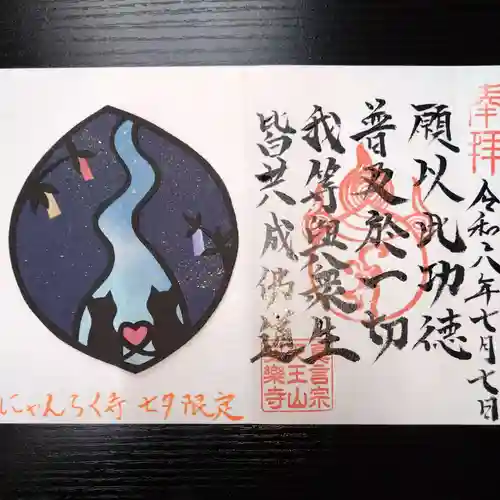 奉拝
令和八年七月七日
願以此功徳
普及於一切
我等與衆生
皆共成仏道
真言宗
王山
樂寺
にゃんらく寺 七夕限定